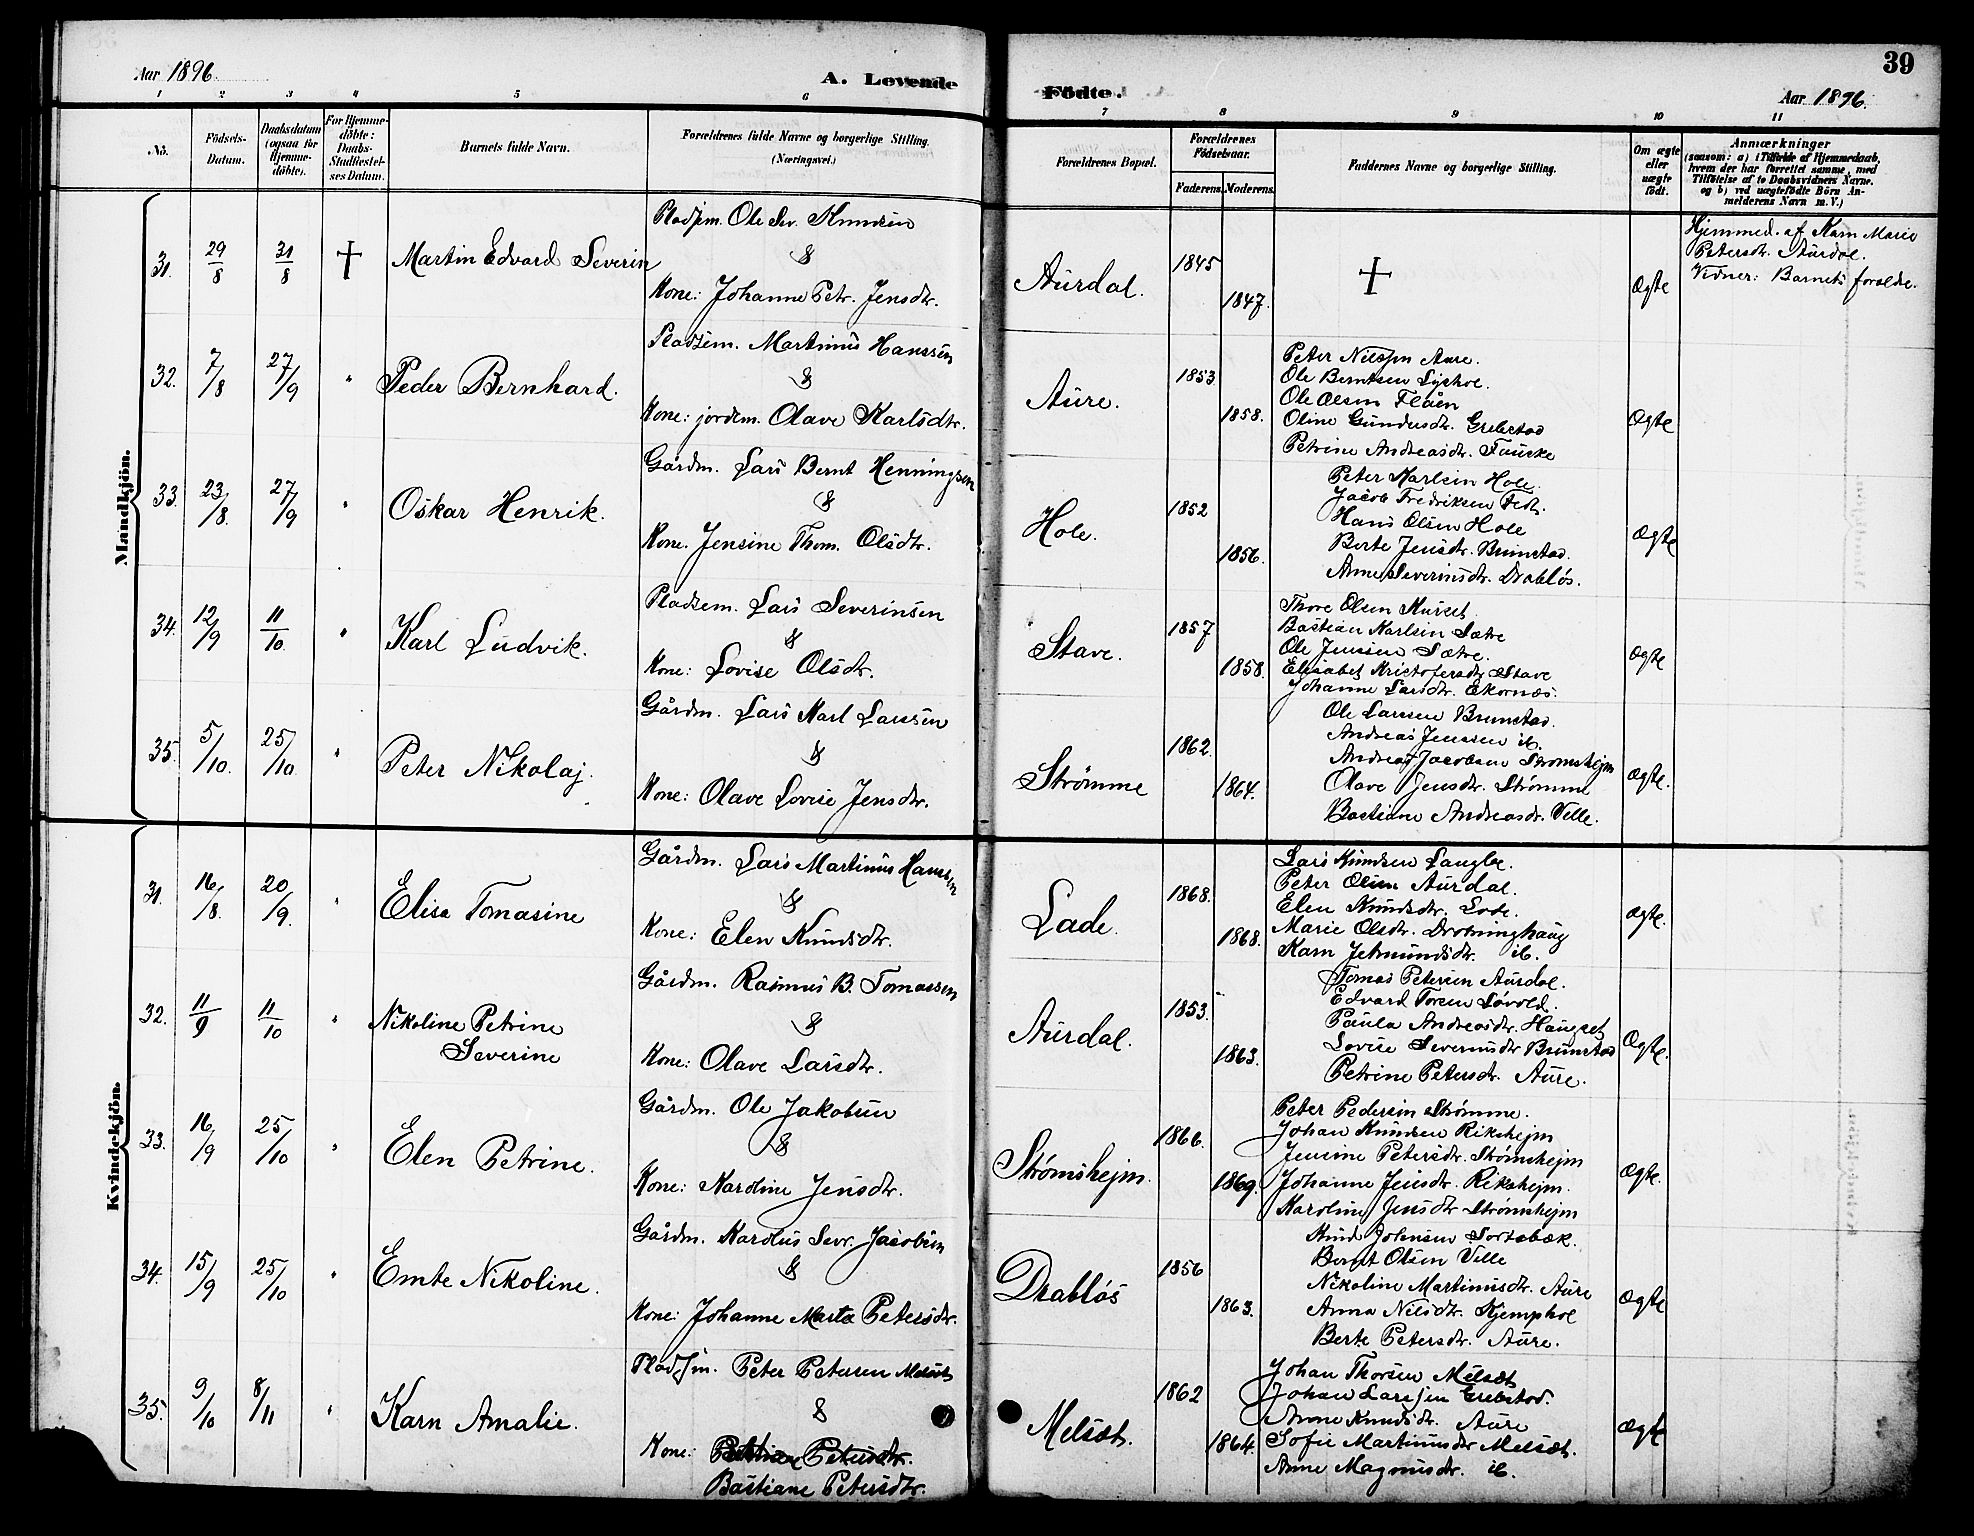 39
Aar 1896.
A. Levende
Födte.
Aar 1896.
1 2 3 4 5 6 7 8 9 10 11
No.
Födsels-
Datum.
Daabsdatum
(ogsaa for
Hjemme-
döbte).
For Hjemme-
döbte:
Daabs-
Stadfæstel-
ses Datum.
Barnets fulde Navn.
Forældrenes fulde Navne og borgerlige Stilling.
(Næringsvei.)
Forældrenes Bopæl.
Forældrenes
Födselsaar.
Faderens. Moderens.
Faddernes Navne og borgerlige Stilling.
Om ægte
eller
uægte
födt.
Anmærkninger
(saasom: a) i Tilfælde af Hjemmedaab,
hvem der har forrettet samme, med
Tilföielse af to Daabsvidners Navne.
og b) ved uægtefödte Börn An-
melderens Navn m. V.)
Mandkjön.
31. 29/8 31/8 † Martin Edvard Severin
Pladsm. Ole Sev. Knudsen
&
Kone: Johanne Petr. Jensdtr.
Aurdal.
1845
1847.
†
Ægte
Hjemmed. af Karn Marie
Petersdr. Aurdal.
Vidner: Barnets forældre.
32. 7/8 27/9 " Peder Bernhard.
Pladsem. Martinus Hanssen
&
Kone: jordem. Olave Karlsdtr.
Aure.
1853
1858.
Peter Nilssen Aure.
Ole Berntsen Lyshol.
Ole Olsen Flåen
Oline Gundersdr. Grebstad
Petrine Andreasdr. Fauske
Ægte
33. 23/8. 27/9 " Oskar Henrik.
Gårdm. Lars Bernt Henningsen
&
Kone. Jensine Thom. Olsdtr.
Hole.
1852
1856.
Peter Karlsen Hole.
Jacob Fredriksen Fedt.
Hans Olsen Hole
Berte Jensdr. Brunstad.
Anne Severinsdr. Drabløs.
Ægte
34. 12/9 11/10. " Karl Ludvik.
Pladsem. Lars Severinsen
&
Kone: Lovise Olsdtr.
Stave.
1857
1858.
Thore Olsen Murset
Bastian Karlsen Sætre
Ole Jenssen Sætre.
Elisabet Kristofersdr. Stave
Johanne Larsdr. Ekornæs.
Ægte
35. 5/10. 25/10. " Peter Nikolaj.
Gårdm. Lars Karl Larssen
&
Kone: Olave Lovise Jensdtr.
Strømme
1862.
1864.
Ole Larssen Brunstad.
Andreas Jenssen ib.
Andreas Jacobsen Strømshejm
Olave Jensdr. Strømme
Bastiane Andreasdr. Velle.
Ægte.
Kvindekjön.
31. 16/8. 20/9. " Elise Tomasine
Gårdm. Lars Martinus Hanssen
&
Kone: Elen Knudsdtr.
Lade.
1868.
1868.
Lars Knudsen Langlo.
Peter Olsen Aurdal.
Elen Knudsdtr. Lade.
Marie Olsdtr. Drotninghaug
Karn Jetmundsdtr. ib.
Ægte.
32. 11/9 11/10 " Nikoline Petrine
Severine
Gårdm. Rasmus B. Tomassen
&
Kone: Olave Larsdtr.
Aurdal.
1853.
1863.
Tomas Petersen Aurdal.
Edvard Toresen Løvold.
Paula Andreasdr. Haugset
Lovise Severinsdtr Brunstad
Petrine Petersdr. Aure.
Ægte.
33. 16/9 25/10 " Elen Petrine.
Gårdm. Ole Jakobsen
&
Kone: Karoline Jensdtr.
Strømshejm.
1866.
1869.
Peter Pedersen Strømme.
Johan Knudsen Rikshejm
Jensine Petersdtr. Strømshejm
Johanne Jensdtr. Rikshejm.
Karoline Jensdtr Strømshejm
Ægte.
34. 15/9 25/10 " Emte Nikoline.
Gårdm. Karolus Sevr. Jacobsen
&
Kone: Johanne Marta Petersdtr.
Drabløs
1856
1863.
Knud Johnsen Sortebæk.
Bernt Olsen Velle
Nikoline Martinusdtr. Aure
Anna Nilsdtr. Kjemphol
Berte Petersdtr. Aure.
Ægte
35. 9/10 8/11 " Karn Amalie.
Pladsm. Peter Petersen Melsæt
&
Kone: Petersdtr.
Bastiane Petersdtr.
Melsæt.
1862
1864.
Johan Thorsen Melsæt
Johan Larssen Grebstad.
Anne Knudsdtr. Aure
Sofie Martinusdtr Melsæt.
Anne Magnusdr. ib.
Ægte